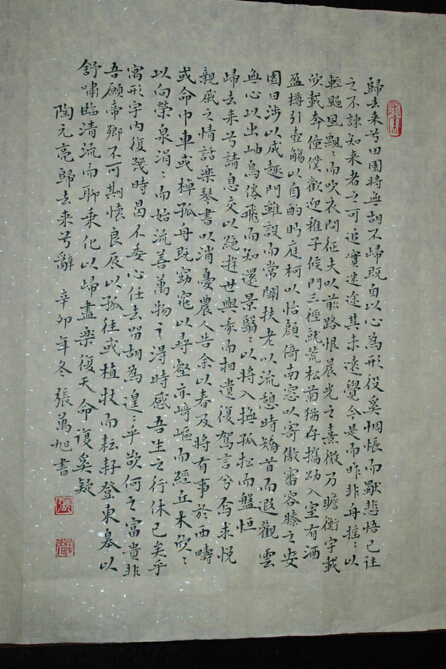 歸去來兮田園將蕪胡不歸既自以心為形役奚惆悵而獨悲悟已往
之不諫知來者之可追實迷途其未遠覺今是而昨非舟搖々以
輕颺風飄々而吹衣問征夫以前路恨晨光之熹微乃瞻衡宇載
欣載奔僮僕歡迎稚子候門三徑就荒松菊猶存攜幼入室有酒
盈樽引壺觴以自酌眄庭柯以怡顏倚南窗以寄傲審容膝之安
園日涉以成趣門雖設而常關扶老以流憩時矯首而遐觀雲
無心以出岫鳥倦飛而知還景翳々以將入撫孤松而盤桓
歸去來兮請息交以絕遊世與我而相遺復駕言兮焉求悅
親戚之情話樂琴書以消憂農人告余以春及將有事於西疇
或命巾車或棹孤舟既窈窕以尋壑亦崎嶇而經丘木欣々
以向榮泉涓々而始流善萬物之得時感吾生之行休已矣乎
寓形宇內復幾時曷不委心任去留胡為遑々乎欲何之富貴非
吾願帝鄉不可期懷良辰以孤往或植杖而耘耔登東皋以
舒嘯臨清流而聊乘化以歸盡樂復天命復奚疑
陶元亮歸去來兮辭 辛卯年冬張萬旭書